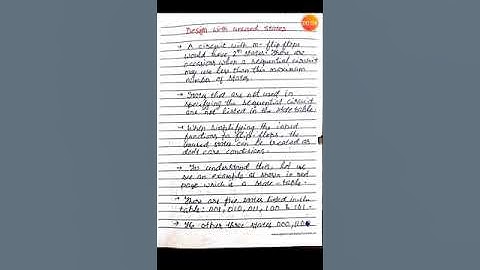 Design with unused states
→ A circuit with m- flip flops
would have 2^m states. There are
occasions when a sequential circuit
may use less than this maximum
number of states.
→ States that are not used in
specifying the sequential circuit
are not listed in the state table.
→ When simplifying the input
functions to flip flops, the
unused states can be treated as
don't care conditions.
→ To understand this, let us
see an example as shown in next
page which is a state-table.
→ There are five states listed in the
table: 001, 010, 011, 100 & 101.
→ The other three states 000, 110